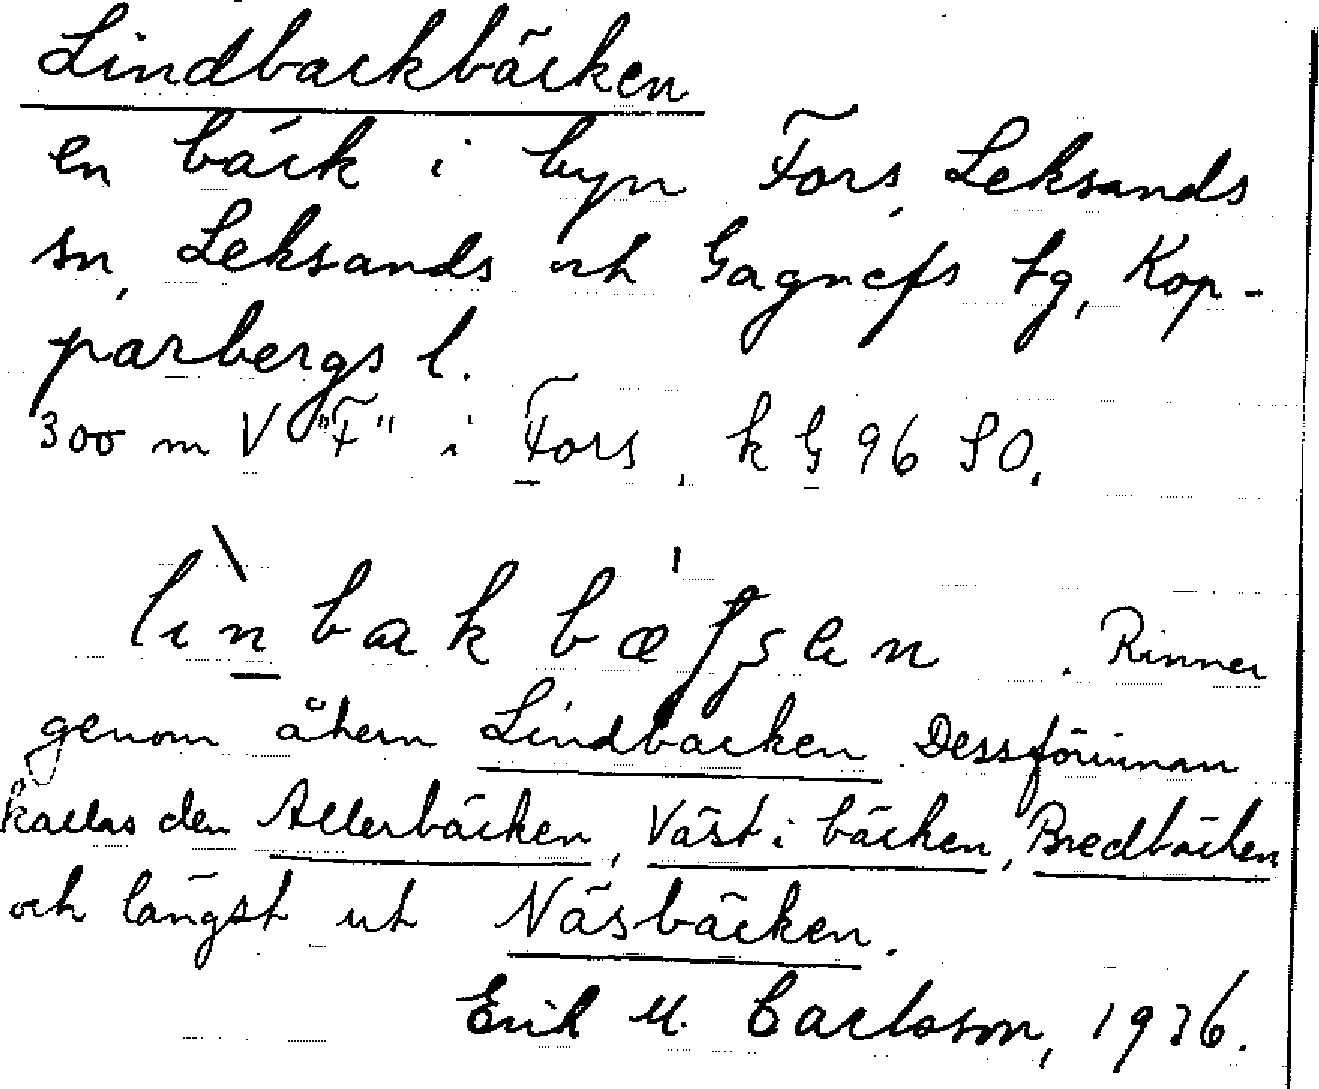 Lindbackbäcken
en bäck i byn Fors, Leksands
sn, Leksands och Gagnefs tg, Kop-
parbergs l.
300 m V "F" i Fors, k G 96 SO.
Rinner
genom åkern Lindbacken. Dessförinnan
kallas den Allerbäcken, Väst i bäcken, Bredbäcken
och längst ut Näsbäcken.
Erik M. Carlsson, 1936.